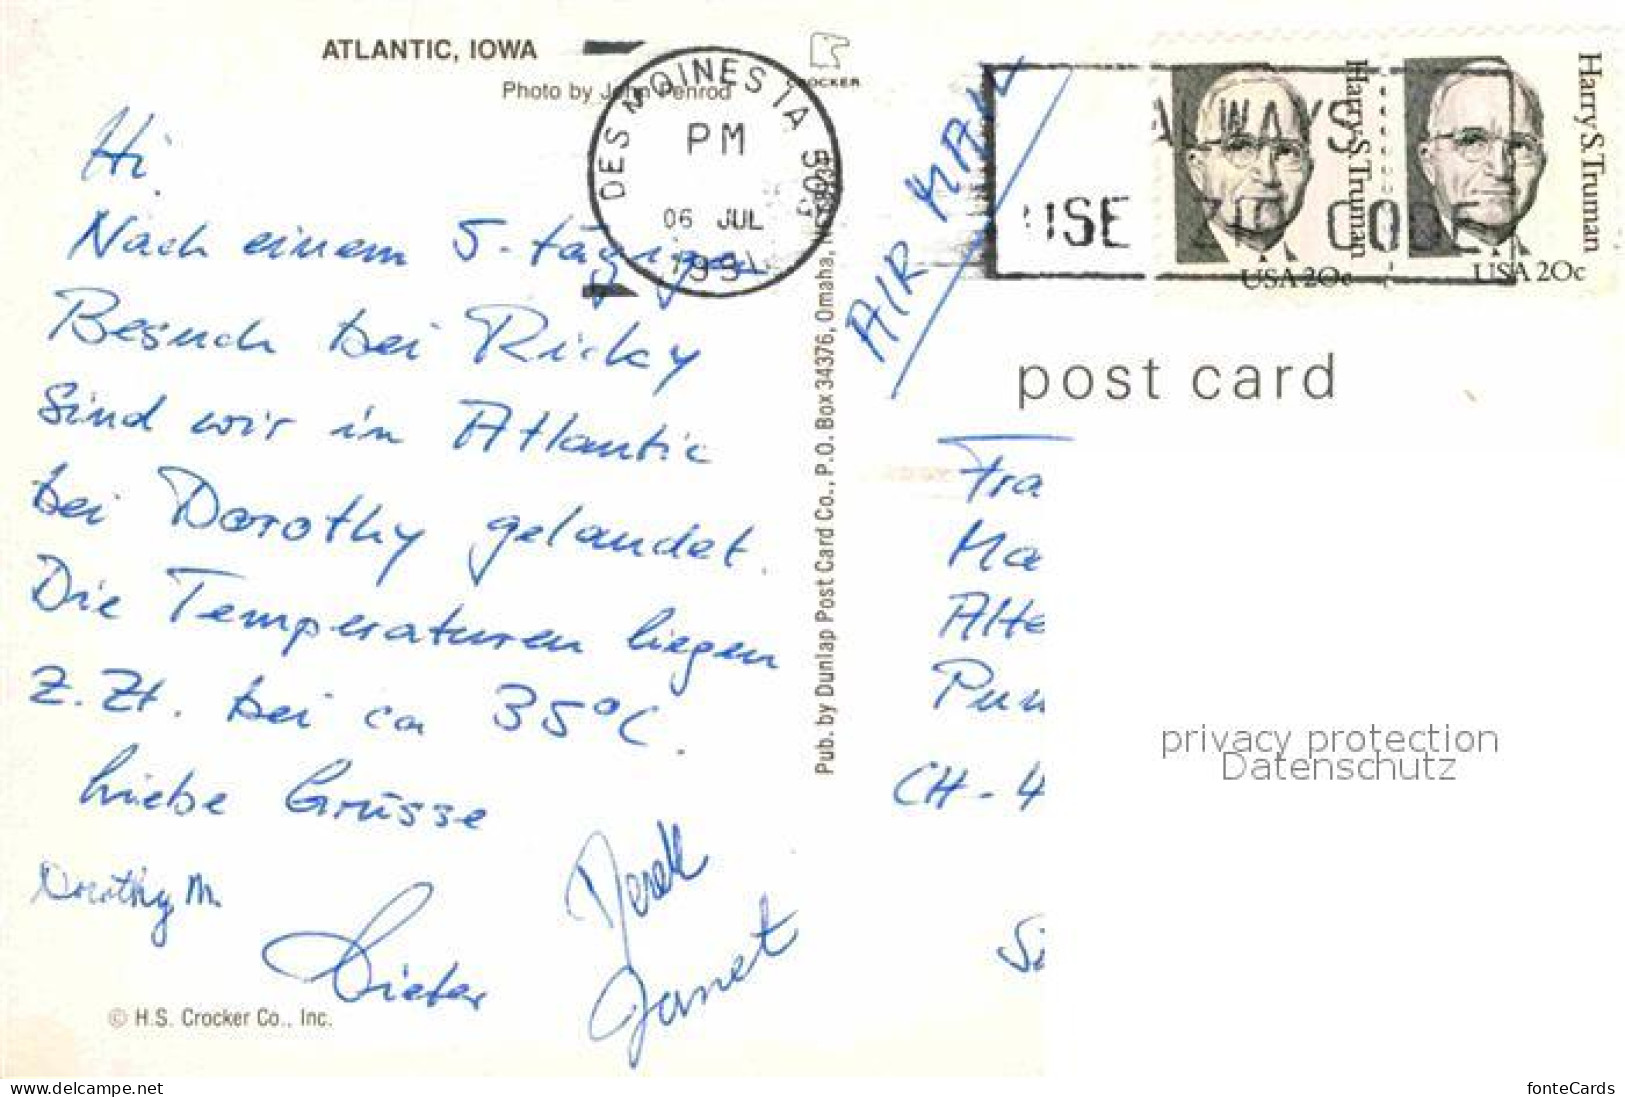 ATLANTIC, IOWA
Photo by John Penrod
Hi
Nach einem 5-tägigen
Besuch bei Ricky
Sind wir in Atlantic
bei Dorothy gelandet.
Die Temperaturen liegen
z. Zt. bei ca 35°C.
Liebe Grüsse
Dorothy M.
Dieter
Derek
Janet
© H.S. Crocker Co., Inc.
DES MOINES IA
PM
06 JUL
CROCKER
Pub. by Dunlap Post Card Co., P.O. Box 34376, Omaha,
AIR MAIL
ALWAYS
USE ZIP CODE
Harry S. Truman
USA 20c
Harry S. Truman
USA 20c
post card
Fra
Ma
Alte
Pun
CH-4
Si
privacy protection
Datenschutz
www.delcampe.net
fonteCards